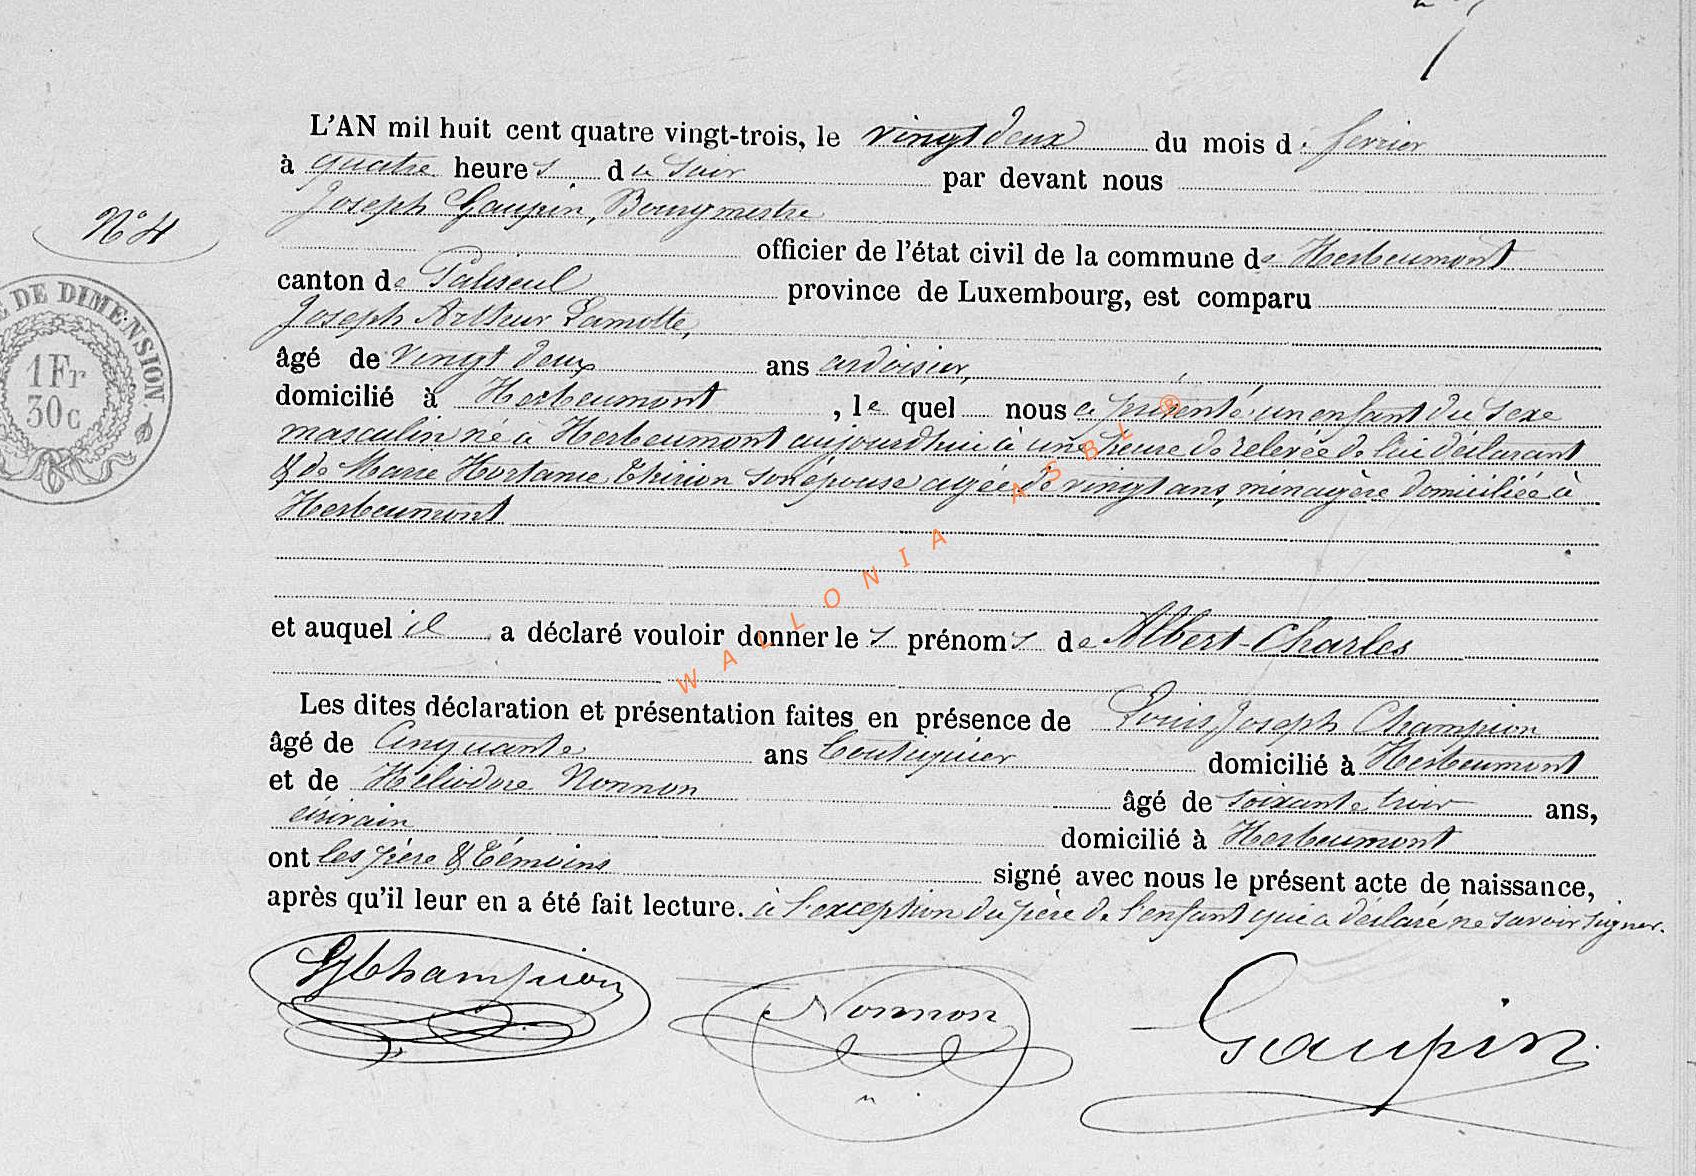 L'AN mil huit cent quatre vingt-trois, le vingt deux du mois de fevrier
à quatre heures du soir par devant nous
Joseph Gaupin, Bourgmestre
N° 4
officier de l'état civil de la commune de Herbeumont
canton de Paliseul province de Luxembourg, est comparu
DE DIMENSION
1 Fr
30c
Joseph Arthur Lamotte,
âgé de vingt deux ans ardoisier,
domicilié à Herbeumont, lequel nous a présenté un enfant du sexe
masculin né à Herbeumont aujourd'hui à une heure de relevée de lui déclarant
& de Marie Hortance Thirion son épouse agée de vingt ans, ménagère domiciliée à
Herbeumont
WALLONIA ASBL ®
et auquel il a déclaré vouloir donner les prénoms de Albert-Charles
Les dites déclaration et présentation faites en présence de Louis Joseph Champion
âgé de Cinquante ans boutiquier domicilié à Herbeumont
et de Héliodore Nonnon âgé de soixante trois ans,
écrivain domicilié à Herbeumont
ont les père & témoins signé avec nous le présent acte de naissance,
après qu'il leur en a été fait lecture. à l'exception du père de l'enfant qui a déclaré ne savoir signer.
LJChampion Nonnon Gaupin